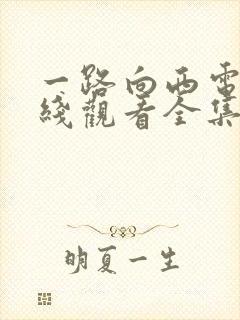 一路向西電
綫觀看全集
明夏一生